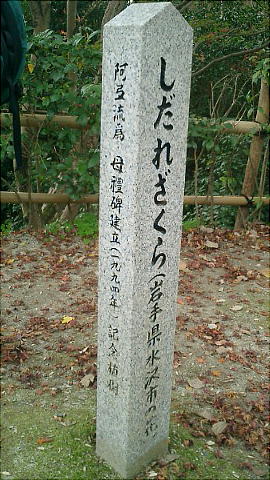 しだれざくら(岩手県水沢市の花)
阿弖流為 母禮碑建立(一九九四年 記念植樹